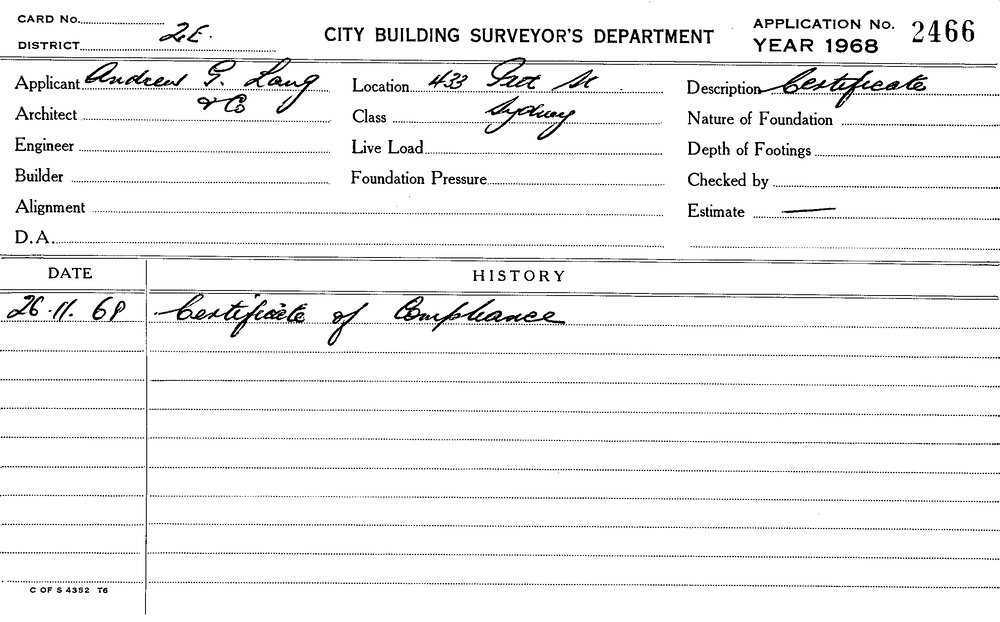 CARD No. CITY BUILDING SURVEYOR'S DEPARTMENT APPLICATION No. 2466
DISTRICT 2E. YEAR 1968
Applicant Andrew G. Lang Location 433 Pitt St Description Certificate
Architect & Co Class Sydney Nature of Foundation
Engineer Live Load Depth of Footings
Builder Foundation Pressure Checked by
Alignment Estimate —
D.A.
DATE HISTORY
26.11.68 Certificate of Compliance
C OF S 4352 T6